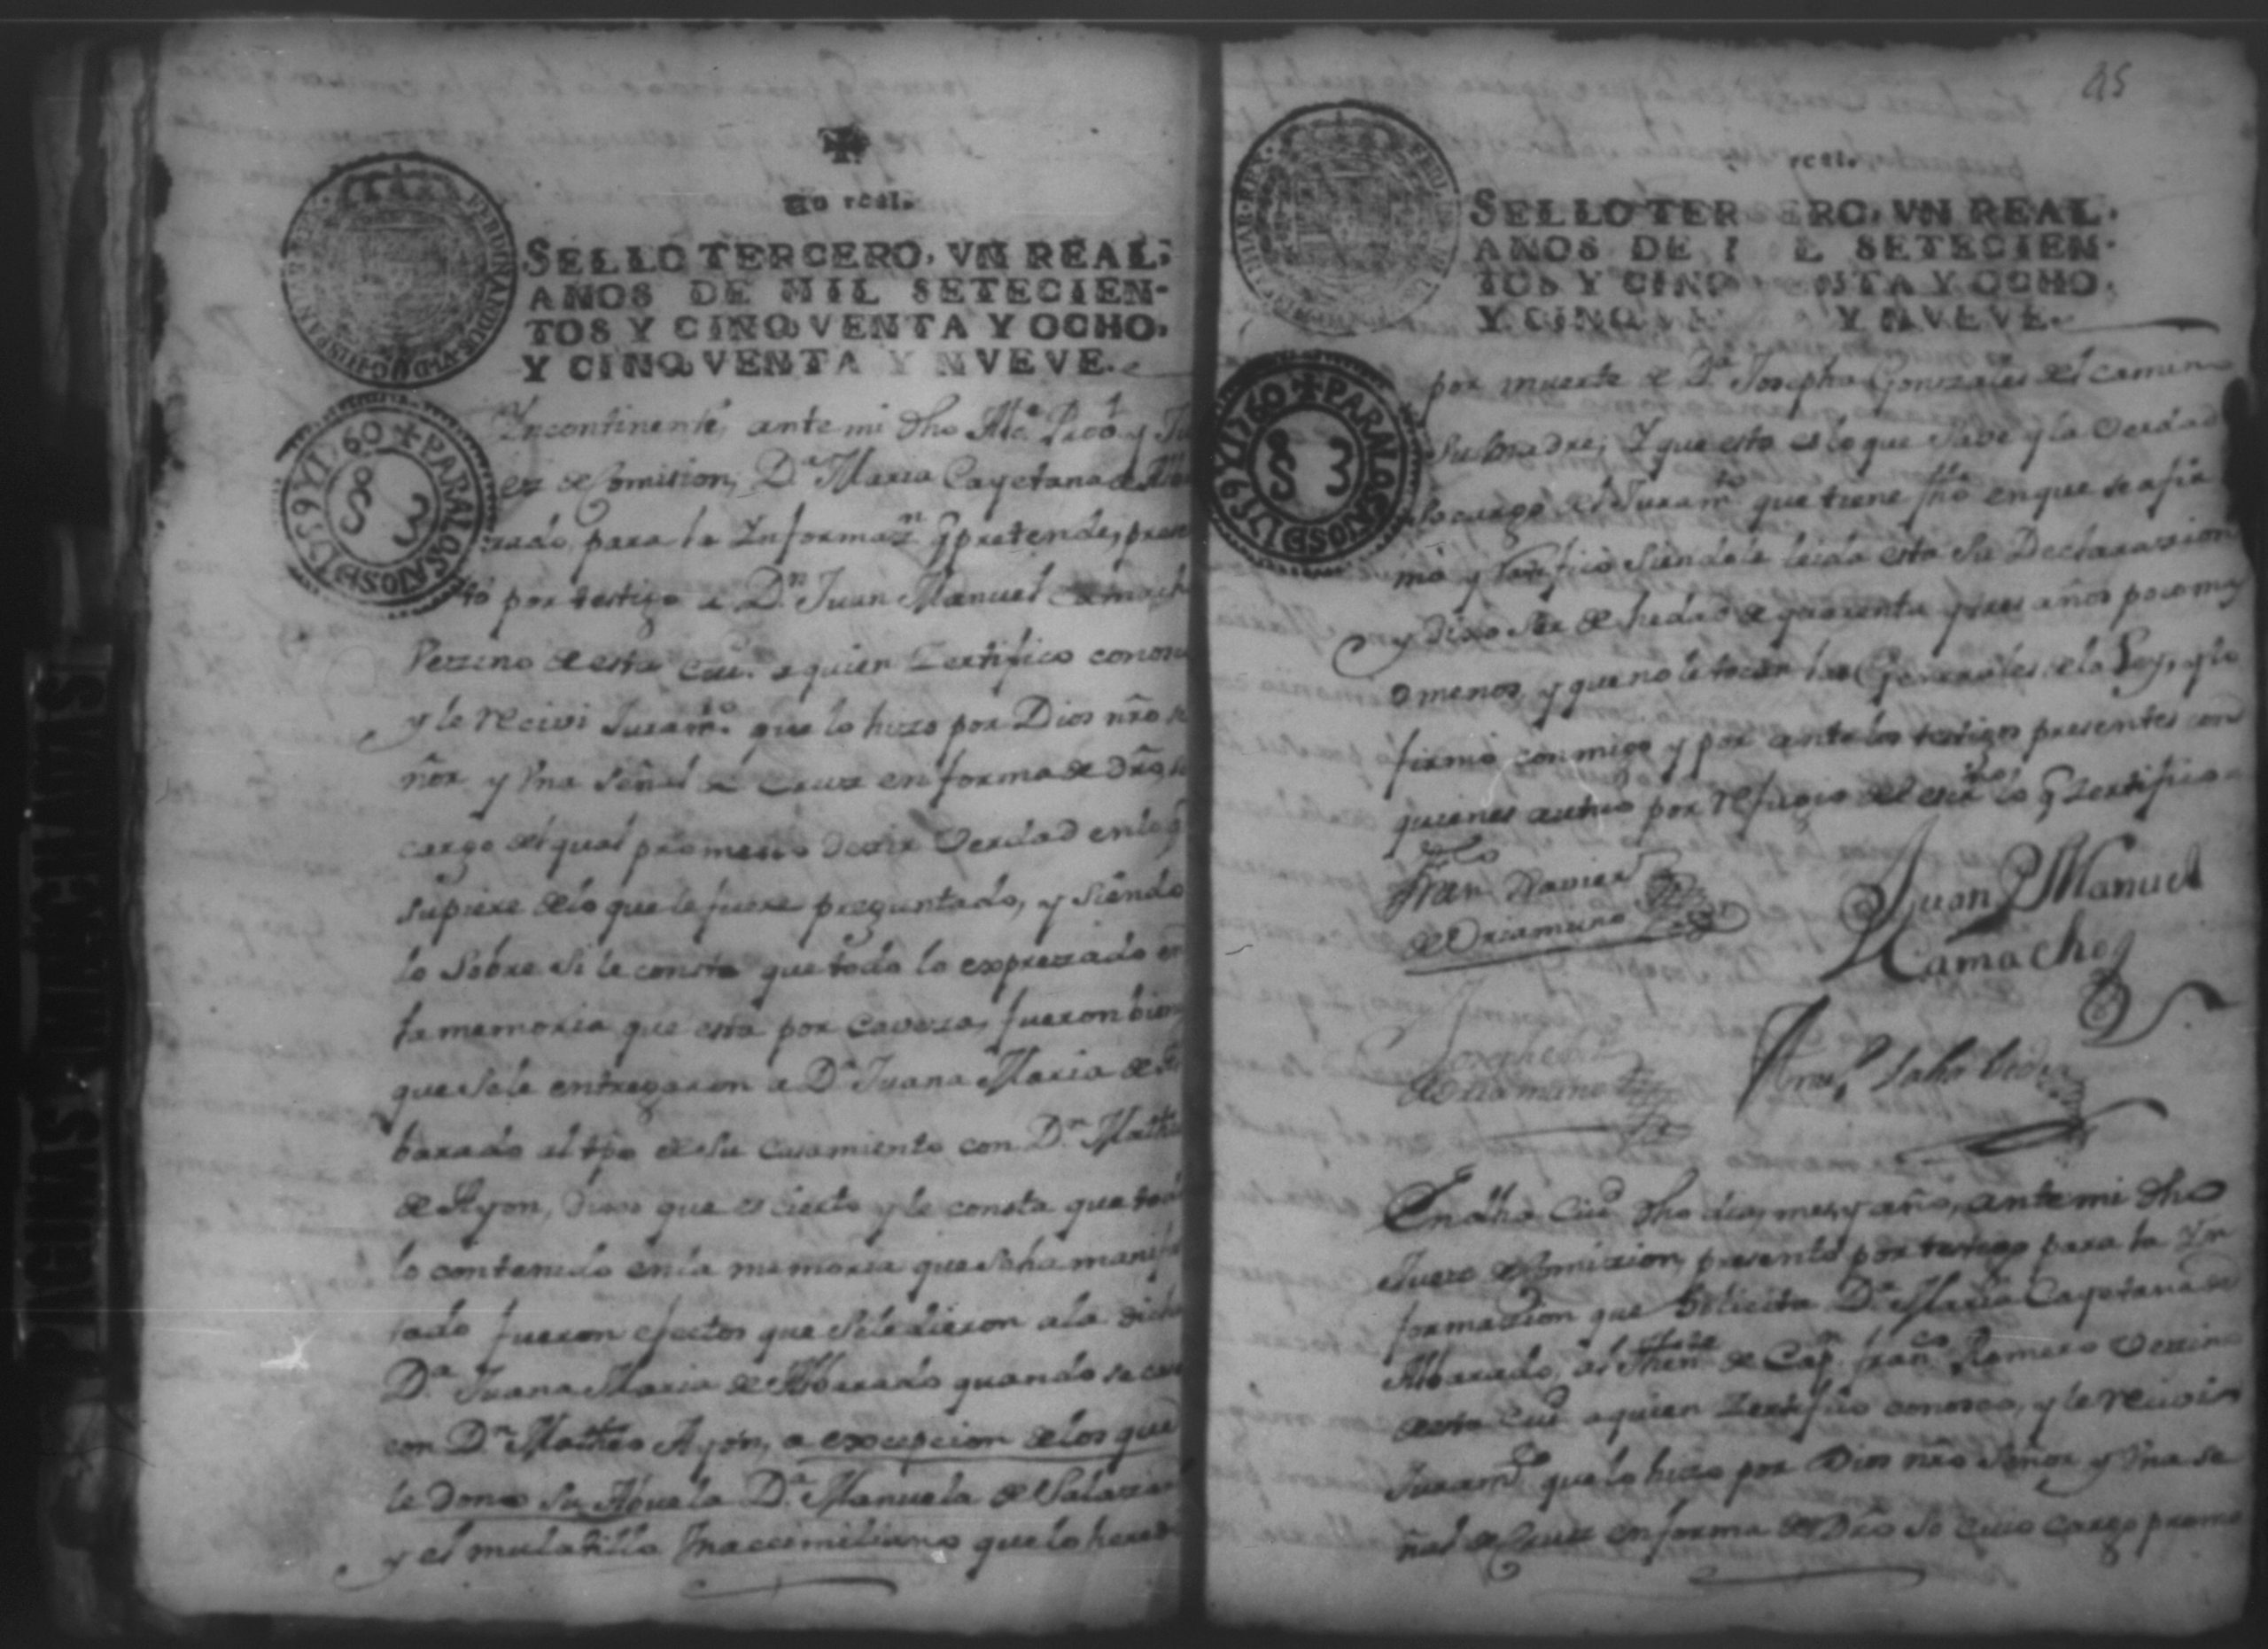 un real.
SELLO TERCERO, VN REAL,
AÑOS DE MIL SETECIEN-
TOS Y CINQVENTA Y OCHO,
Y CINQVENTA Y NVEVE.
PARA LOS AÑOS DE 1759 Y 1760
Incontinenti, ante mi dho
ez de Comision, Da. Maria Cayetana de Alba
rado, para la Informazn. q pretende, presen
tó por testigo a Dn. Juan Manuel Camach
Vezino de esta Ciu. a quien Zertifico conosc
y le recivi Juramto. que lo hizo por Dios nro se
ñor y Vna Señal de Cruz en forma de dro, so
cargo del qual promettio dezir Verdad en lo q
supiere de lo que le fuere preguntado, y siendo
lo sobre si le consta que todo lo exprezado en
la memoria que esta por caveza, fueron bien
que se le entregaron a Da. Juana Maria de Al
barado al tpo de su casamiento con Dn. Mathe
de Ayon, dixo que es cierto y le consta que tod
lo contenido en la memoria que se ha manifes
tado fueron efectos que se le dieron a la dicha
Da. Juana Maria de Albarado quando se cas
con Dn. Matheo Ayón, a excepcion de los que
le dono su Abuela Da. Manuela de Salazar
y el mulatillo que lo hered
45
real.
SELLO TERCERO, VN REAL,
AÑOS DE MIL SETECIEN-
TOS Y CINQVENTA Y OCHO,
Y CINQVENTA Y NVEVE.
PARA LOS AÑOS DE 1759 Y 1760
por muerte de Da. Josepha Gonzales del Camin
su Madre; Y que esto es lo que save y la Verdad
so cargo del Juramto. que tiene fho en que se afir
mó y ratificó siendole leida esta su Declarazion
y dixo ser de hedad de quarenta y tres años poco ma
o menos, y que no le tocan las Generales de la Ley, y lo
firmó conmigo y por ante los testigos presentes con
quienes autuo por refugio del escrivno. lo q Zertifico
Fran Xavier
de Oriamuno
Juan Manuel
Camacho
Joseph
de Oriamuno
Franco.
En dha Ciud. dho dia, mes, y año, ante mi dho
Juez de Comizion, presentó por testigo para la In
formazion que solicita Da. Maria Cayetana de
Albarado, al Thente. de Capn. Franco. Romero Vezino
de esta Ciud. a quien Zertifico conosco, y le recivi
Juramto. que lo hizo por Dios nro Señor y Vna se
ñal de Cruz en forma de dro so cuio cargo prome